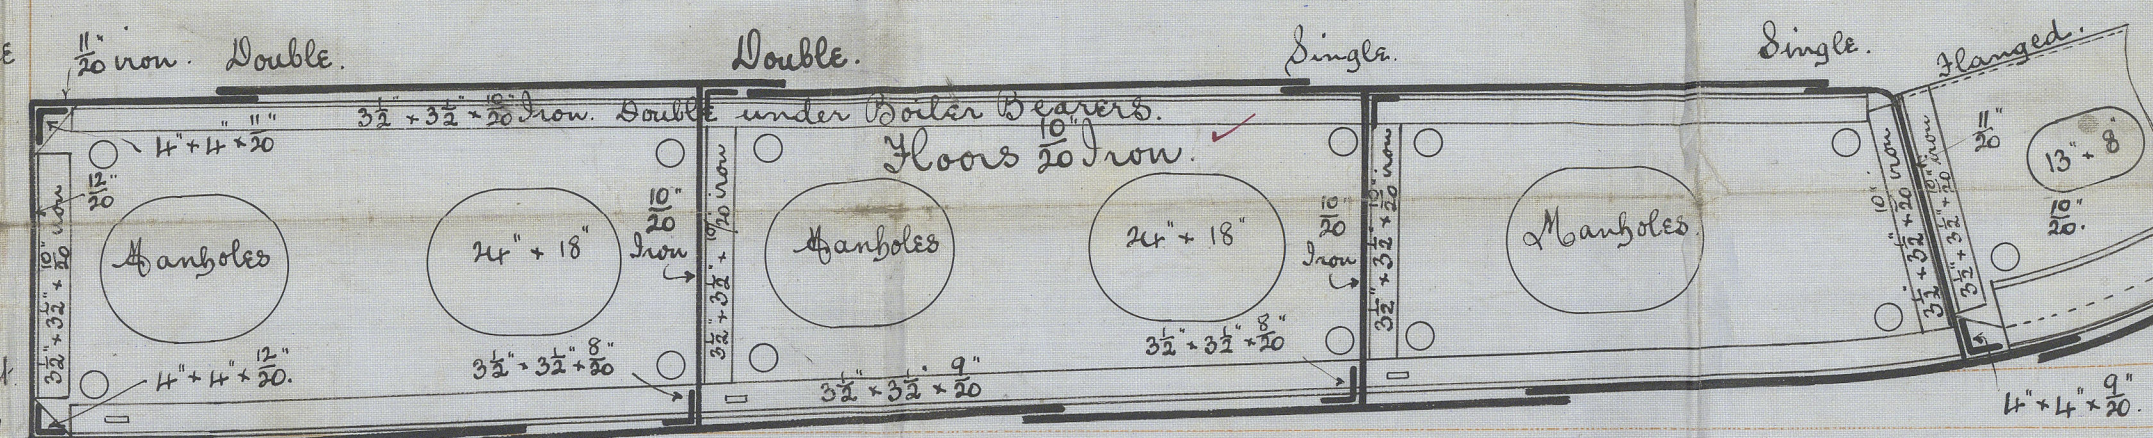 11/20" iron. Double.
Double.
Single.
Single.
Flanged.
3 1/2" × 3 1/2" × 10/20" Iron. Double under Boiler Bearers.
4" × 4" × 11/20"
Floors 10/20" Iron.
12/20"
3 1/2" × 3 1/2" × 10/20" iron
Manholes
24" × 18"
10/20" Iron
3 1/2" × 3 1/2" × 10/20" iron
Manholes
24" × 18"
10/20" Iron
3 1/2" × 3 1/2" × 10/20" iron
Manholes
3 1/2" × 3 1/2" × 10/20" iron
3 1/2" × 3 1/2" × 10/20" iron
11/20"
13" × 8"
10/20".
4" × 4" × 12/20".
3 1/2" × 3 1/2" × 8/20"
3 1/2" × 3 1/2" × 9/20"
3 1/2" × 3 1/2" × 8/20"
4" × 4" × 9/20".